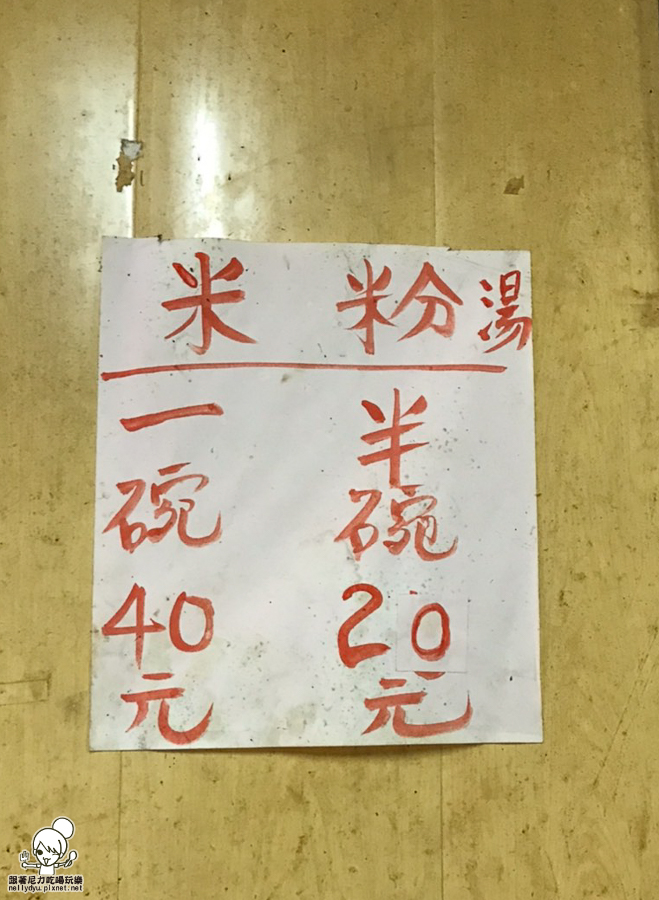 米粉湯
一碗40元
半碗20元
跟著尼力吃喝玩樂
nellydyu.pixnet.net